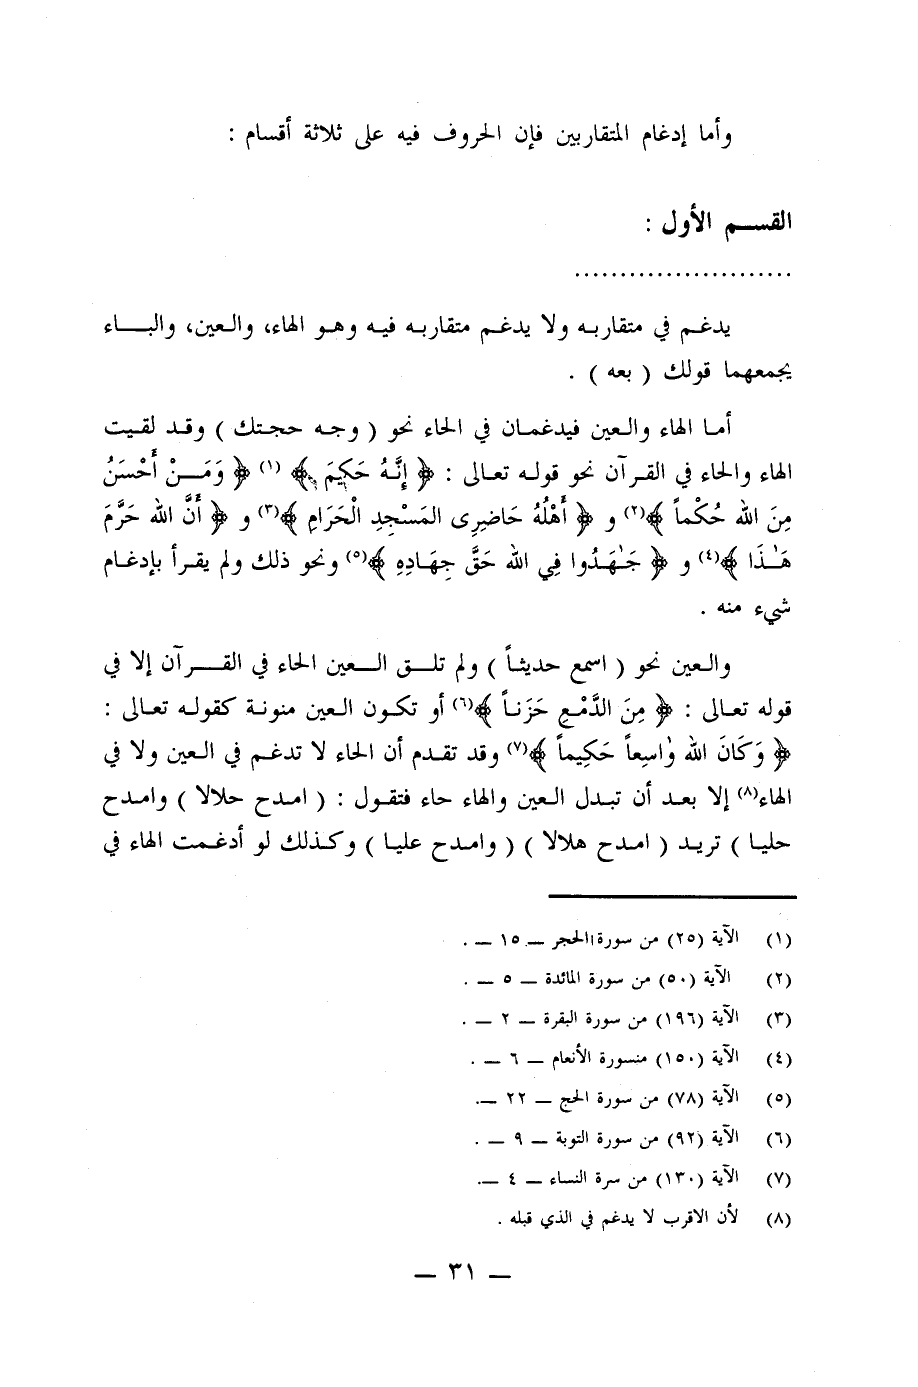 وأما إدغام المتقاربين فإن الحروف فيه على ثلاثة أقسام :
القسم الأول :
........................
يدغم في متقاربه ولا يدغم متقاربه فيه وهو الهاء، والعين، والباء
يجمعهما قولك ( بعه ) .
أما الهاء والعين فيدغمان في الحاء نحو ( وجه حجتك ) وقد لقيت
الهاء والحاء في القرآن نحو قوله تعالى : ﴿ إِنَّهُ حَكِيمَ ﴾ (١) ﴿ وَمَنْ أَحْسَنُ
مِنَ الله حُكْماً ﴾(٢) و ﴿ أَهْلُهُ حَاضِرِى المَسْجِدِ الْحَرَامِ ﴾(٣) و ﴿ أَنَّ الله حَرَّمَ
هَٰذَا ﴾(٤) و ﴿ جَٰهَدُوا فِي الله حَقَّ جِهَادِهِ ﴾(٥) ونحو ذلك ولم يقرأ بإدغام
شيء منه .
والعين نحو ( اسمع حديثاً ) ولم تلق العين الحاء في القرآن إلا في
قوله تعالى : ﴿ مِنَ الدَّمْعِ حَزَناً ﴾(٦) أو تكون العين منونة كقوله تعالى :
﴿ وَكَانَ الله وٰاسِعاً حَكِيماً ﴾(٧) وقد تقدم أن الحاء لا تدغم في العين ولا في
الهاء(٨) إلا بعد أن تبدل العين والهاء حاء فتقول : ( امدح حلالا ) وامدح
حليا ) تريد ( امدح هلالا ) ( وامدح عليا ) وكذلك لو أدغمت الهاء في
(١) الآية (٢٥) من سورة االحجر — ١٥ — .
(٢) الآية (٥٠) من سورة المائدة — ٥ — .
(٣) الآية (١٩٦) من سورة البقرة — ٢ — .
(٤) الآية (١٥٠) منسورة الأنعام — ٦ — .
(٥) الآية (٧٨) من سورة الحج — ٢٢ —.
(٦) الآية (٩٢) من سورة التوبة — ٩ — .
(٧) الآية (١٣٠) من سرة النساء — ٤ —.
(٨) لأن الاقرب لا يدغم في الذي قبله .
— ٣١ —